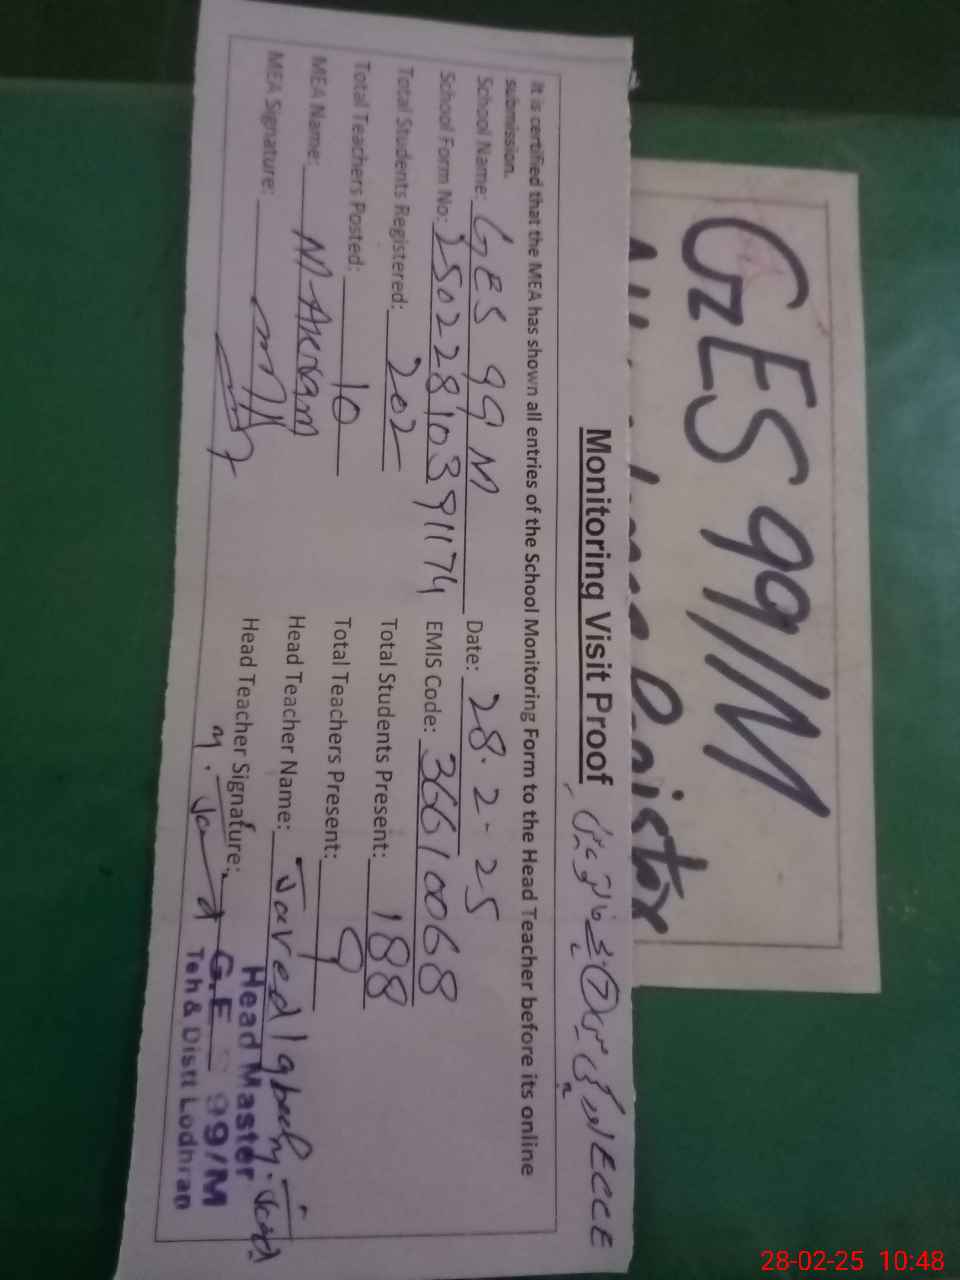 GES 99/M
Monitoring Visit Proof
ECCE
It is certified that the MEA has shown all entries of the School Monitoring Form to the Head Teacher before its online
submission.
School Name: GES 99 M Date: 28.2-25
School Form No: 25022810391174 EMIS Code: 36610068
Total Students Registered: 202 Total Students Present: 188
Total Teachers Posted: 10 Total Teachers Present: 9
MEA Name: M Akram Head Teacher Name: Javed Iqbal
MEA Signature: Head Teacher Signature:
Head Master
G.E 99/M
Teh & Distt Lodhran
28-02-25 10:48